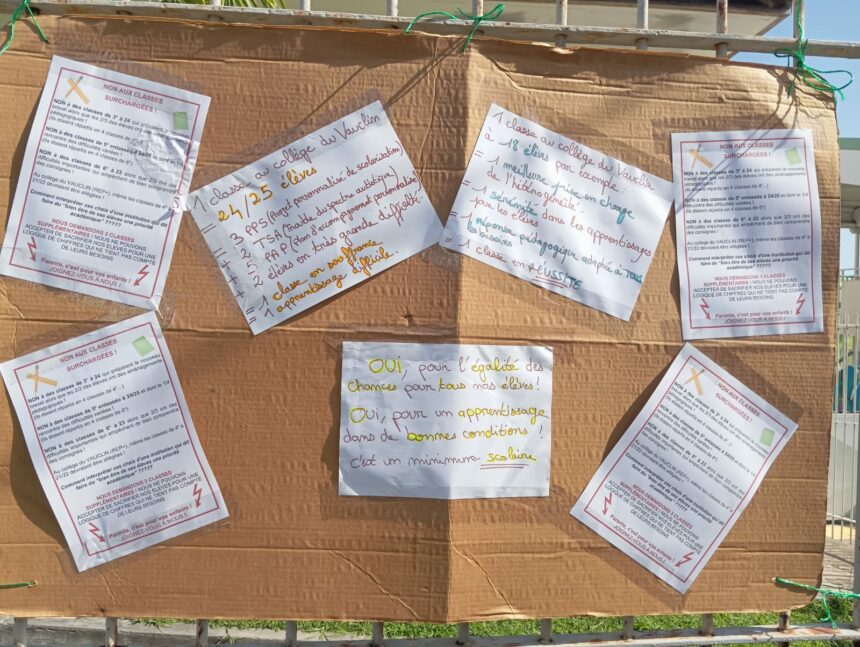 NON AUX CLASSES
SURCHARGÉES !
NON à des classes de 3° à 24 qui préparent le nouveau
brevet alors que les 2/3 des élèves ont des aménagements
pédagogiques !
(ils étaient répartis en 4 classes de 4°...)
NON à des classes de 5° entassées à 24/25 et dont le 1/3
rencontre des difficultés variées !
(ils étaient répartis en 4 classes de 6°)
NON à des classes de 6° à 23 alors que 2/3 ont des
difficultés importantes qui empêchent de bien comprendre
des consignes !
Au collège du VAUCLIN (REP+), même les classes de 4° à
21/22 devraient être allégées !
Comment interpréter ces choix d'une institution qui dit
faire du "bien être de ses élèves une priorité
académique" ?????
NOUS DEMANDONS 2 CLASSES
SUPPLÉMENTAIRES ! NOUS NE POUVONS
ACCEPTER DE SACRIFIER NOS ÉLÈVES POUR UNE
LOGIQUE DE CHIFFRES QUI NE TIENT PAS COMPTE
DE LEURS BESOINS
Parents, c'est pour vos enfants !
JOIGNEZ-VOUS À NOUS !
1 classe au collège du Vauclin
24/25 élèves
+ 3 PPS (Projet personnalisé de scolarisation)
+ 2 TSA (Trouble du spectre autistique)
+ 5 PAP (Plan d'accompagnement personnalisé)
+ 2 élèves en très grande difficulté
= 1 classe en souffrance
= 1 apprentissage difficile.
1 classe au collège du Vauclin
à 18 élèves par exemple :
= 1 meilleure prise en charge
de l'hétérogénéité.
= 1 sérénité dans les apprentissages
pour les élèves
= 1 réponse pédagogique adaptée à TOUS
les besoins
= 1 classe en RÉUSSITE
NON AUX CLASSES
SURCHARGÉES !
NON à des classes de 3° à 24 qui préparent le nouveau
brevet alors que les 2/3 des élèves ont des aménagements
pédagogiques !
(ils étaient répartis en 4 classes de 4°...)
NON à des classes de 5° entassées à 24/25 et dont le 1/3
rencontre des difficultés variées !
(ils étaient répartis en 4 classes de 6°)
NON à des classes de 6° à 23 alors que 2/3 ont des
difficultés importantes qui empêchent de bien comprendre
des consignes !
Au collège du VAUCLIN (REP+), même les classes de 4° à
21/22 devraient être allégées !
Comment interpréter ces choix d'une institution qui dit
faire du "bien être de ses élèves une priorité
académique" ?????
NOUS DEMANDONS 2 CLASSES
SUPPLÉMENTAIRES ! NOUS NE POUVONS
ACCEPTER DE SACRIFIER NOS ÉLÈVES POUR UNE
LOGIQUE DE CHIFFRES QUI NE TIENT PAS COMPTE
DE LEURS BESOINS
Parents, c'est pour vos enfants !
JOIGNEZ-VOUS À NOUS !
NON AUX CLASSES
SURCHARGÉES !
NON à des classes de 3° à 24 qui préparent le nouveau
brevet alors que les 2/3 des élèves ont des aménagements
pédagogiques !
(ils étaient répartis en 4 classes de 4°...)
NON à des classes de 5° entassées à 24/25 et dont le 1/3
rencontre des difficultés variées !
(ils étaient répartis en 4 classes de 6°)
NON à des classes de 6° à 23 alors que 2/3 ont des
difficultés importantes qui empêchent de bien comprendre
des consignes !
Au collège du VAUCLIN (REP+), même les classes de 4° à
21/22 devraient être allégées !
Comment interpréter ces choix d'une institution qui dit
faire du "bien être de ses élèves une priorité
académique" ?????
NOUS DEMANDONS 2 CLASSES
SUPPLÉMENTAIRES ! NOUS NE POUVONS
ACCEPTER DE SACRIFIER NOS ÉLÈVES POUR UNE
LOGIQUE DE CHIFFRES QUI NE TIENT PAS COMPTE
DE LEURS BESOINS
Parents, c'est pour vos enfants !
JOIGNEZ-VOUS À NOUS !
OUI, pour l'égalité des
chances pour tous nos élèves !
OUI, pour un apprentissage
dans de bonnes conditions !
c'est un minimum scolaire
NON AUX CLASSES
SURCHARGÉES !
NON à des classes de 3° à 24 qui préparent le nouveau
brevet alors que les 2/3 des élèves ont des aménagements
pédagogiques !
(ils étaient répartis en 4 classes de 4°...)
NON à des classes de 5° entassées à 24/25 et dont le 1/3
rencontre des difficultés variées !
(ils étaient répartis en 4 classes de 6°)
NON à des classes de 6° à 23 alors que 2/3 ont des
difficultés importantes qui empêchent de bien comprendre
des consignes !
Au collège du VAUCLIN (REP+), même les classes de 4° à
21/22 devraient être allégées !
Comment interpréter ces choix d'une institution qui dit
faire du "bien être de ses élèves une priorité
académique" ?????
NOUS DEMANDONS 2 CLASSES
SUPPLÉMENTAIRES ! NOUS NE POUVONS
ACCEPTER DE SACRIFIER NOS ÉLÈVES POUR UNE
LOGIQUE DE CHIFFRES QUI NE TIENT PAS COMPTE
DE LEURS BESOINS
Parents, c'est pour vos enfants !
JOIGNEZ-VOUS À NOUS !